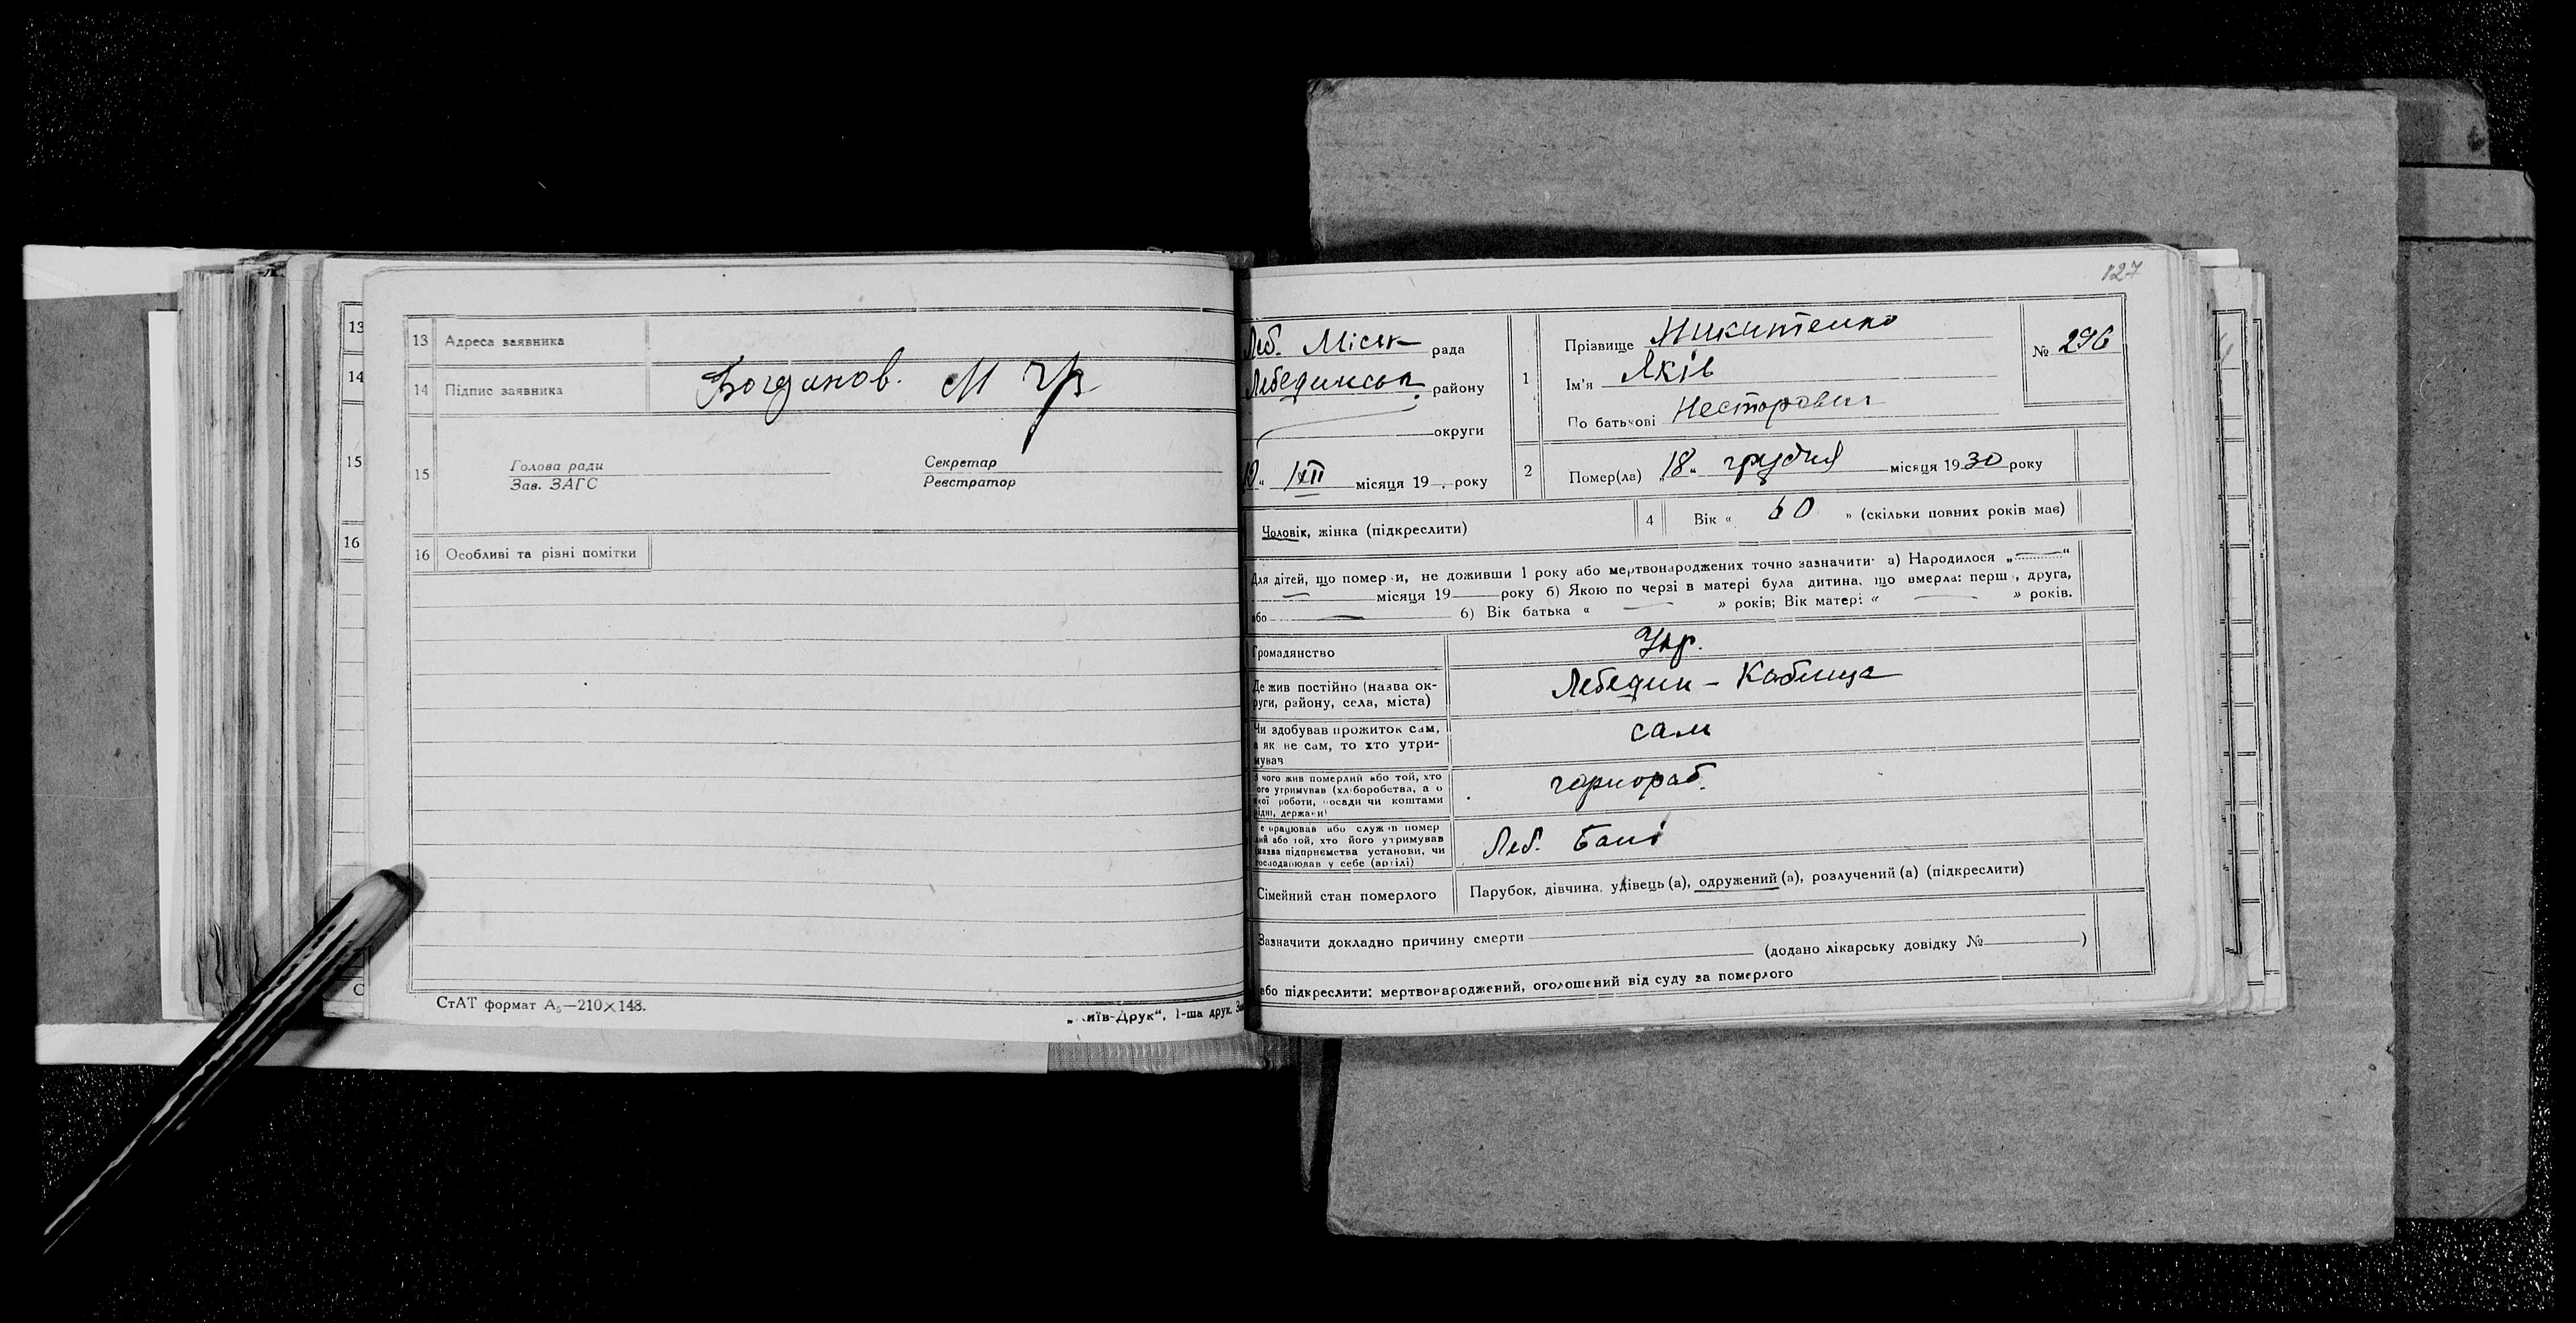 13 Адреса заявника
14 Підпис заявника Богданов. М
15 Голова ради Секретар
Зав. ЗАГС Реєстратор
16 Особливі та різні помітки
СтАТ формат А₅—210×148.
иїв-Друк“, 1-ша друк.
13
14
15
16
127
Леб. Міськ рада
Лебединськ. району
округи
XII місяця 19 . року
1 Прізвище Никитенко
Ім'я Яків
По батькові Несторович
№ 296
2 Помер(ла) „18„ грудня місяця 1930 року
Чоловік, жінка (підкреслити)
4 Вік « 60 » (скільки повних років має)
Для дітей, що померли, не доживши 1 року або мертвонароджених точно зазначити: а) Народилося „ “
місяця 19 року б) Якою по черзі в матері була дитина, що вмерла: перша, друга,
або б) Вік батька « » років; Вік матері « » років.
Громадянство Укр.
Де жив постійно (назва ок-
руги, району, села, міста) Лебедин –
Чи здобував прожиток сам,
а як не сам, то хто утри-
мував сам
З чого жив померлий або той, хто
його утримував (хліборобства, а о
якої роботи, посади чи коштами
рідні, держави) чорнораб.
Де працював або служив помер
лий або той, хто його утримував
(назва підприємства установи, чи
господарював у себе (артілі) Леб. Бані
Сімейний стан померлого Парубок, дівчина, удівець (а), одружений (а), розлучений (а) (підкреслити)
Зазначити докладно причину смерти
(додано лікарську довідку № )
або підкреслити: мертвонароджений, оголошений від суду за померлого